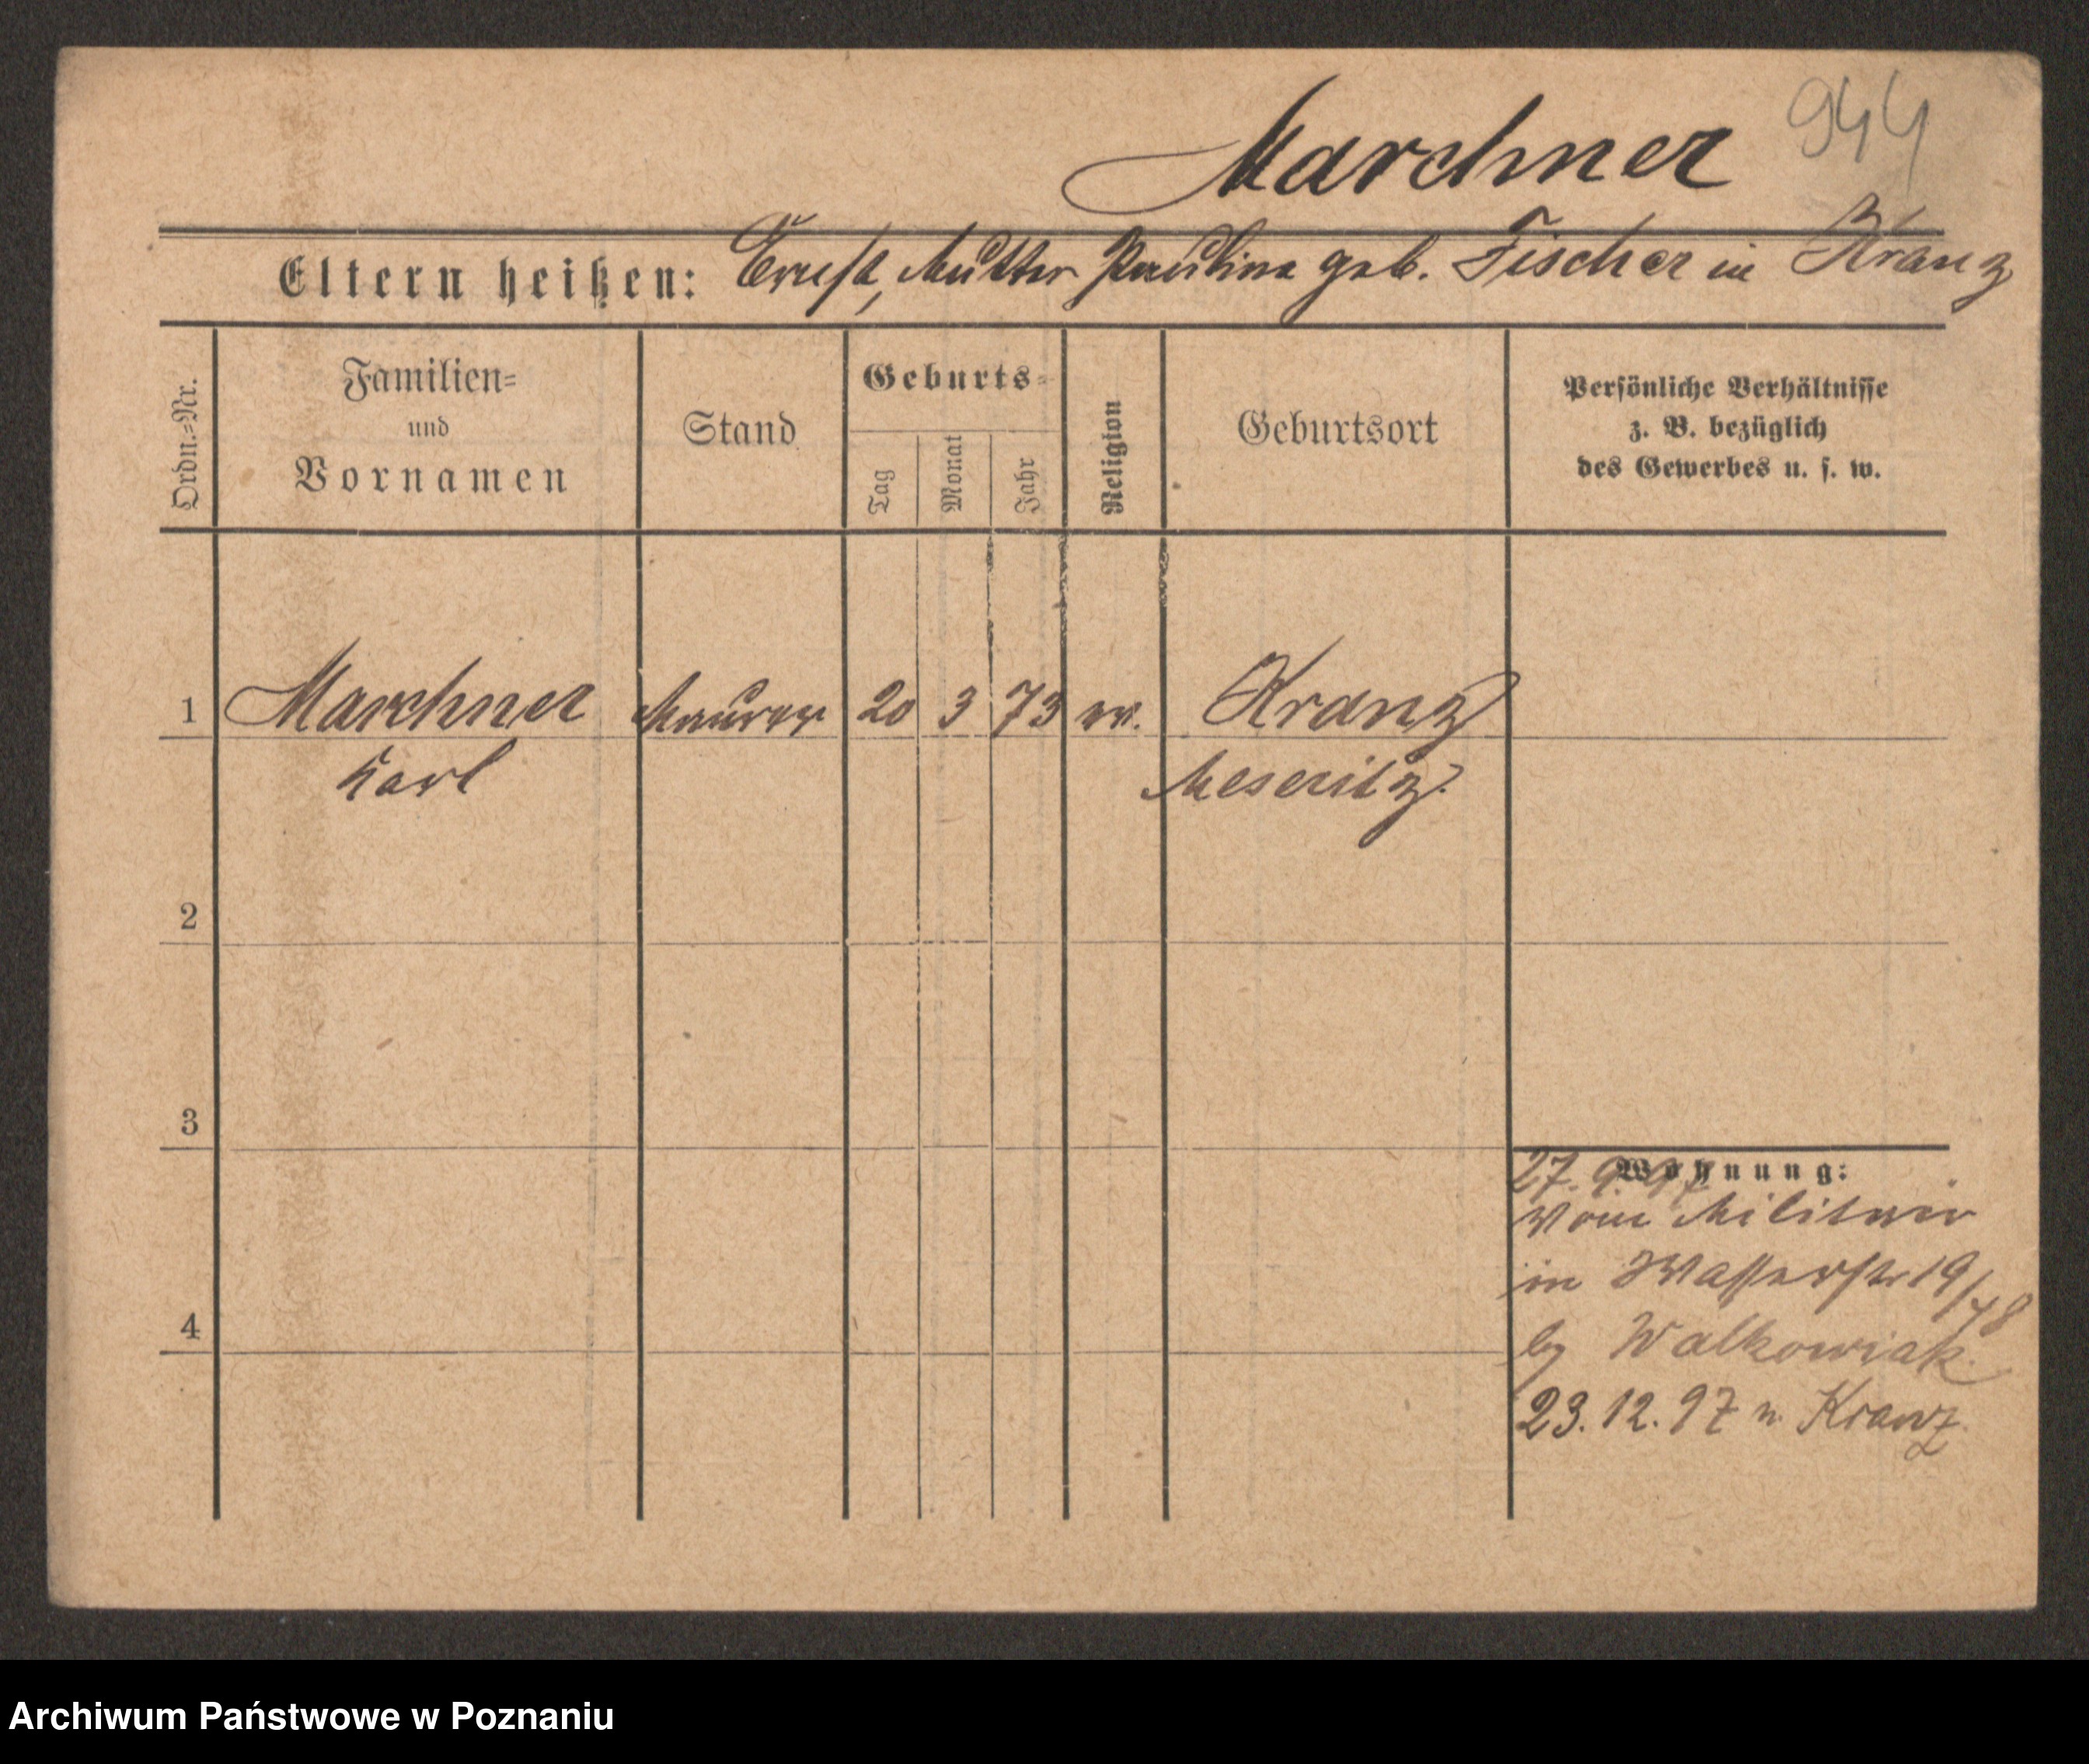 944
Marchner
Eltern heißen: Ernst, Mutter Pauline geb. Fischer in Kranz
Ordn.=Nr.
Familien=
und
Vornamen
Stand
Geburts=
Tag
Monat
Jahr
Religion
Geburtsort
Persönliche Verhältnisse
z. B. bezüglich
des Gewerbes u. s. w.
1 Marchner Maurer 20 3 73 ev. Kranz
Karl Meseritz.
2
3
4
Wohnung:
27. 9. 97
vom Militair
in Wasserstr 19/
by Walkowiak.
23. 12. 97 n. Kranz.
Archiwum Państwowe w Poznaniu